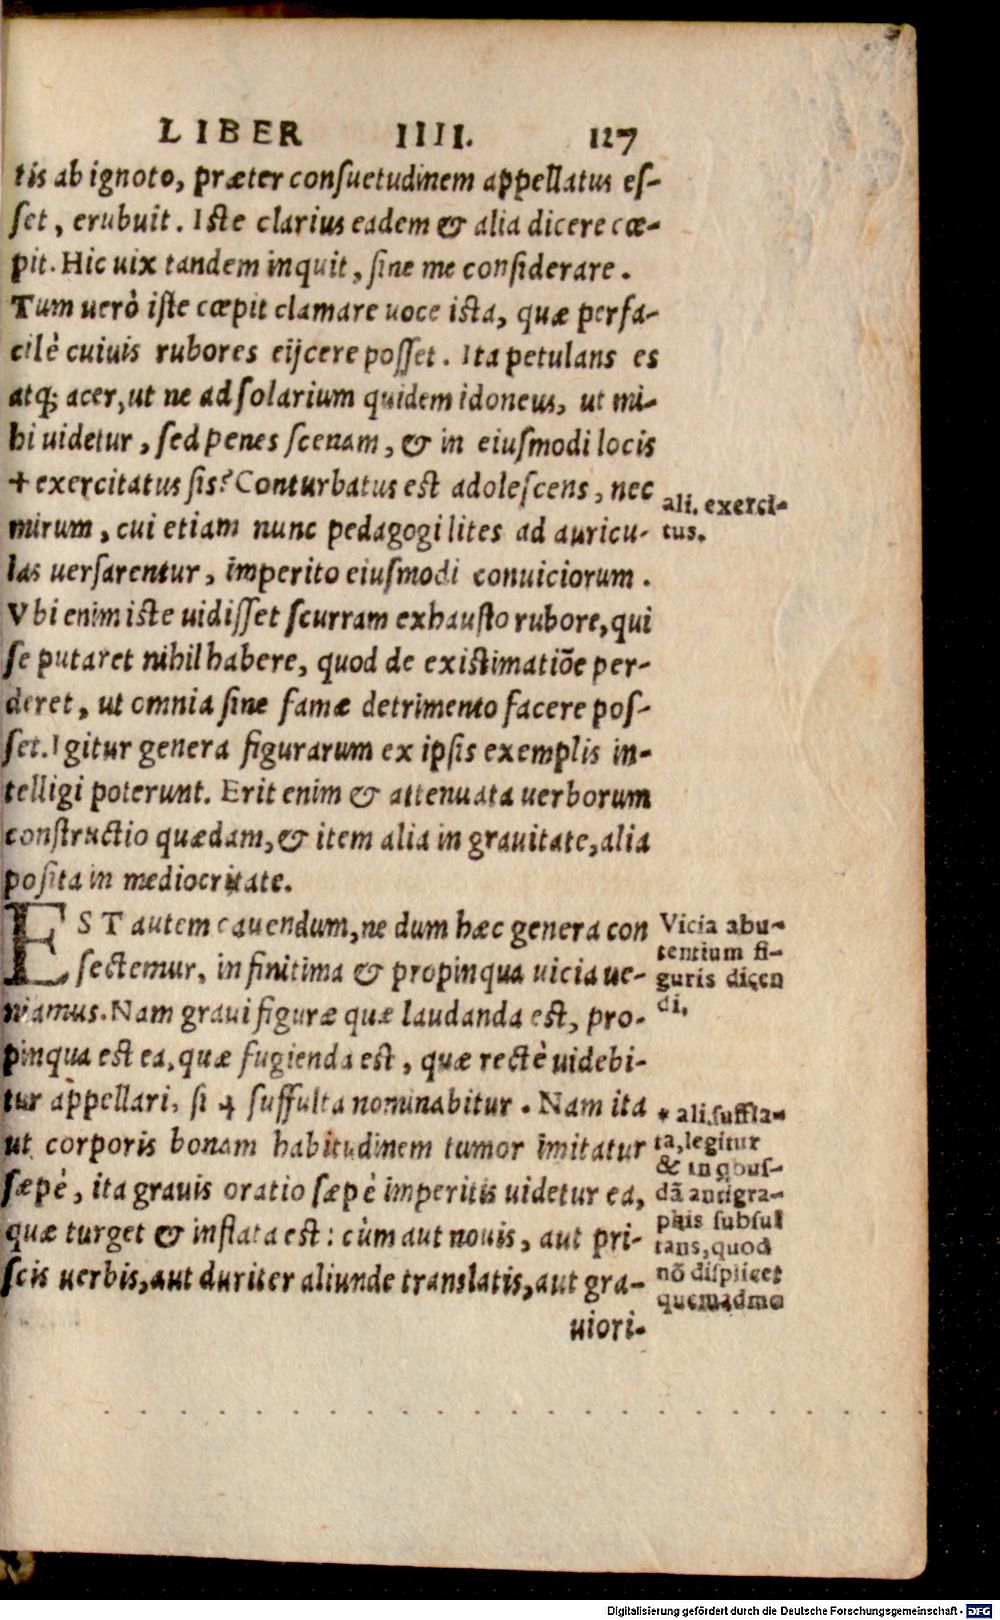 LIBER IIII. 127
tis ab ignoto, præter consuetudinem appellatus es-
set, erubuit. Iste clarius eadem & alia dicere cœ-
pit. Hic uix tandem inquit, sine me considerare.
Tum uerò iste cœpit clamare uoce ista, quæ perfa-
cilè cuiuis rubores eijcere posset. Ita petulans es
atq; acer, ut ne ad solarium quidem idoneus, ut mi-
hi uidetur, sed penes scenam, & in eiusmodi locis
+ exercitatus sis? Conturbatus est adolescens, nec
mirum, cui etiam nunc pedagogi lites ad auricu-
las uersarentur, imperito eiusmodi conuiciorum.
Vbi enim iste uidisset scurram exhausto rubore, qui
se putaret nihil habere, quod de existimatiõe per-
deret, ut omnia sine famæ detrimento facere pos-
set. Igitur genera figurarum ex ipsis exemplis in-
telligi poterunt. Erit enim & attenuata uerborum
constructio quædam, & item alia in grauitate, alia
posita in mediocritate.
EST autem cauendum, ne dum hæc genera con
sectemur, in finitima & propinqua uicia ue-
niamus. Nam graui figuræ quæ laudanda est, pro-
pinqua est ea, quæ fugienda est, quæ rectè uidebi-
tur appellari, si + suffulta nominabitur. Nam ita
ut corporis bonam habitudinem tumor imitatur
sæpè, ita grauis oratio sæpè imperitis uidetur ea,
quæ turget & inflata est: cùm aut nouis, aut pri-
scis uerbis, aut duriter aliunde translatis, aut gra-
uiori-
ali. exerci-
tus.
Vicia abu-
tentium fi-
guris dicen
di.
* ali. suffla-
ta, legitur
& in qbus-
dã antigra-
phis subsul
tans, quod
nõ displicet
quemadmo
Digitalisierung gefördert durch die Deutsche Forschungsgemeinschaft - DFG